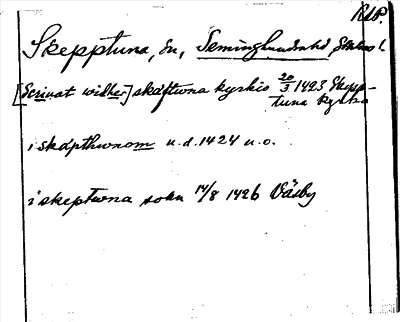 RAP.
Skepptuna, sn, Seminghundrahd, Sthlms l
[Scriuat widher] skæftwna kyrkio 20/3 1423 Skepp-
tuna kyrka
i skæpthwnom u.d. 1424 u.o.
i skeptwna sokn 14/8 1426 Väsby